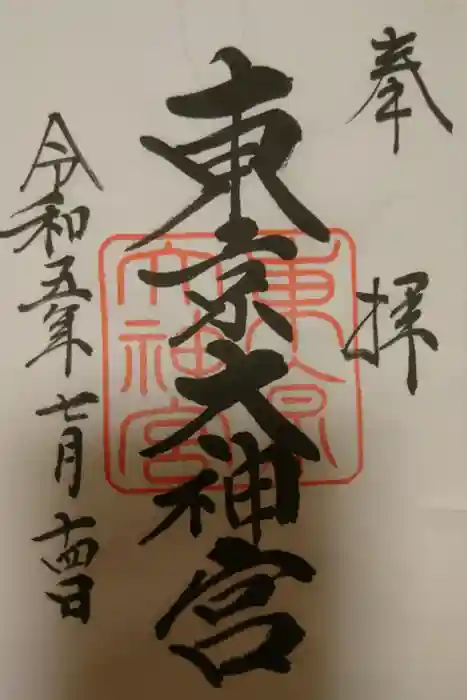 奉拝
東京大神宮
令和五年七月十四日
東京大神宮